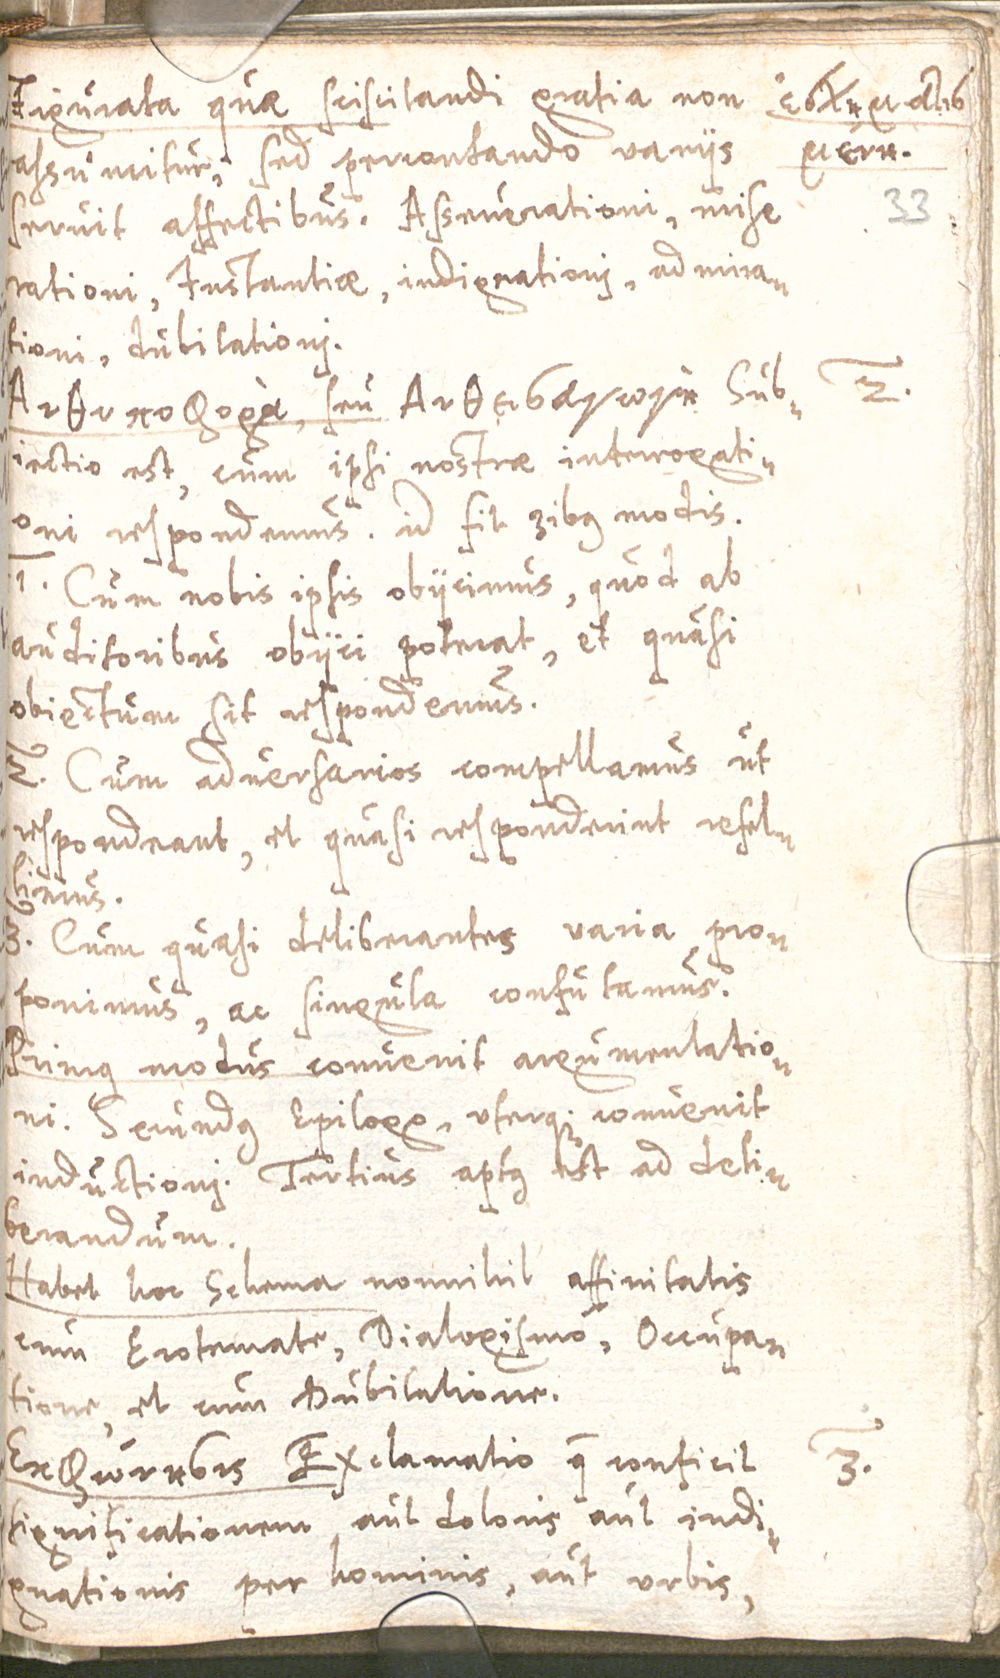 Figurata quæ sciscitandi gratia non ἐσχημάτισ
assumitur, sed percontando varijs μένη.
servit affectibus. Asseverationi, mise 33
rationi, Instantiæ, indignationj, admira„
tioni, dubitationj.
Ανθυποφορὰ, seu Sub„ 2.
iectio est, cum ipsi nostræ interrogati„
oni respondemus. id fit 3ibꝰ modis.
1. Cum nobis ipsis obijcimus, quod ab
auditoribus obijci poterat, et quasi
obiectum sit respondemus.
2. Cum adversarios compellamus ut
respondeant, et quasi responderint refel„
limus.
3. Cum quasi deliberantes varia pro„
ponimus, ac singula confutamus.
Primꝰ modus convenit argumentatio„
ni. Secundꝰ Epilogo, uterqꝫ convenit
inductionj. Tertius aptꝰ est ad deli„
berandum.
Habet hoc Schema nonnihil affinitatis
cum Erotemate, Dialogismo, Occupa„
tione, et cum Dubitatione.
Εκφώνησις Exclamatio q̄ conficit 3.
significationem aut doloris aut indi„
gnationis per hominis, aut urbis,